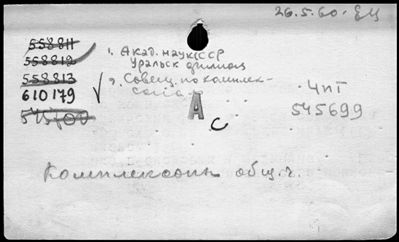 26.5.60. ЕЦ
558811
558812
558813
610179
545700
1. Акад. наук СССР
Уральск филиал
2. Совещ. по комплек-
сонам
А
С
ЧпГ
545699
Комплексоны общ. ч.